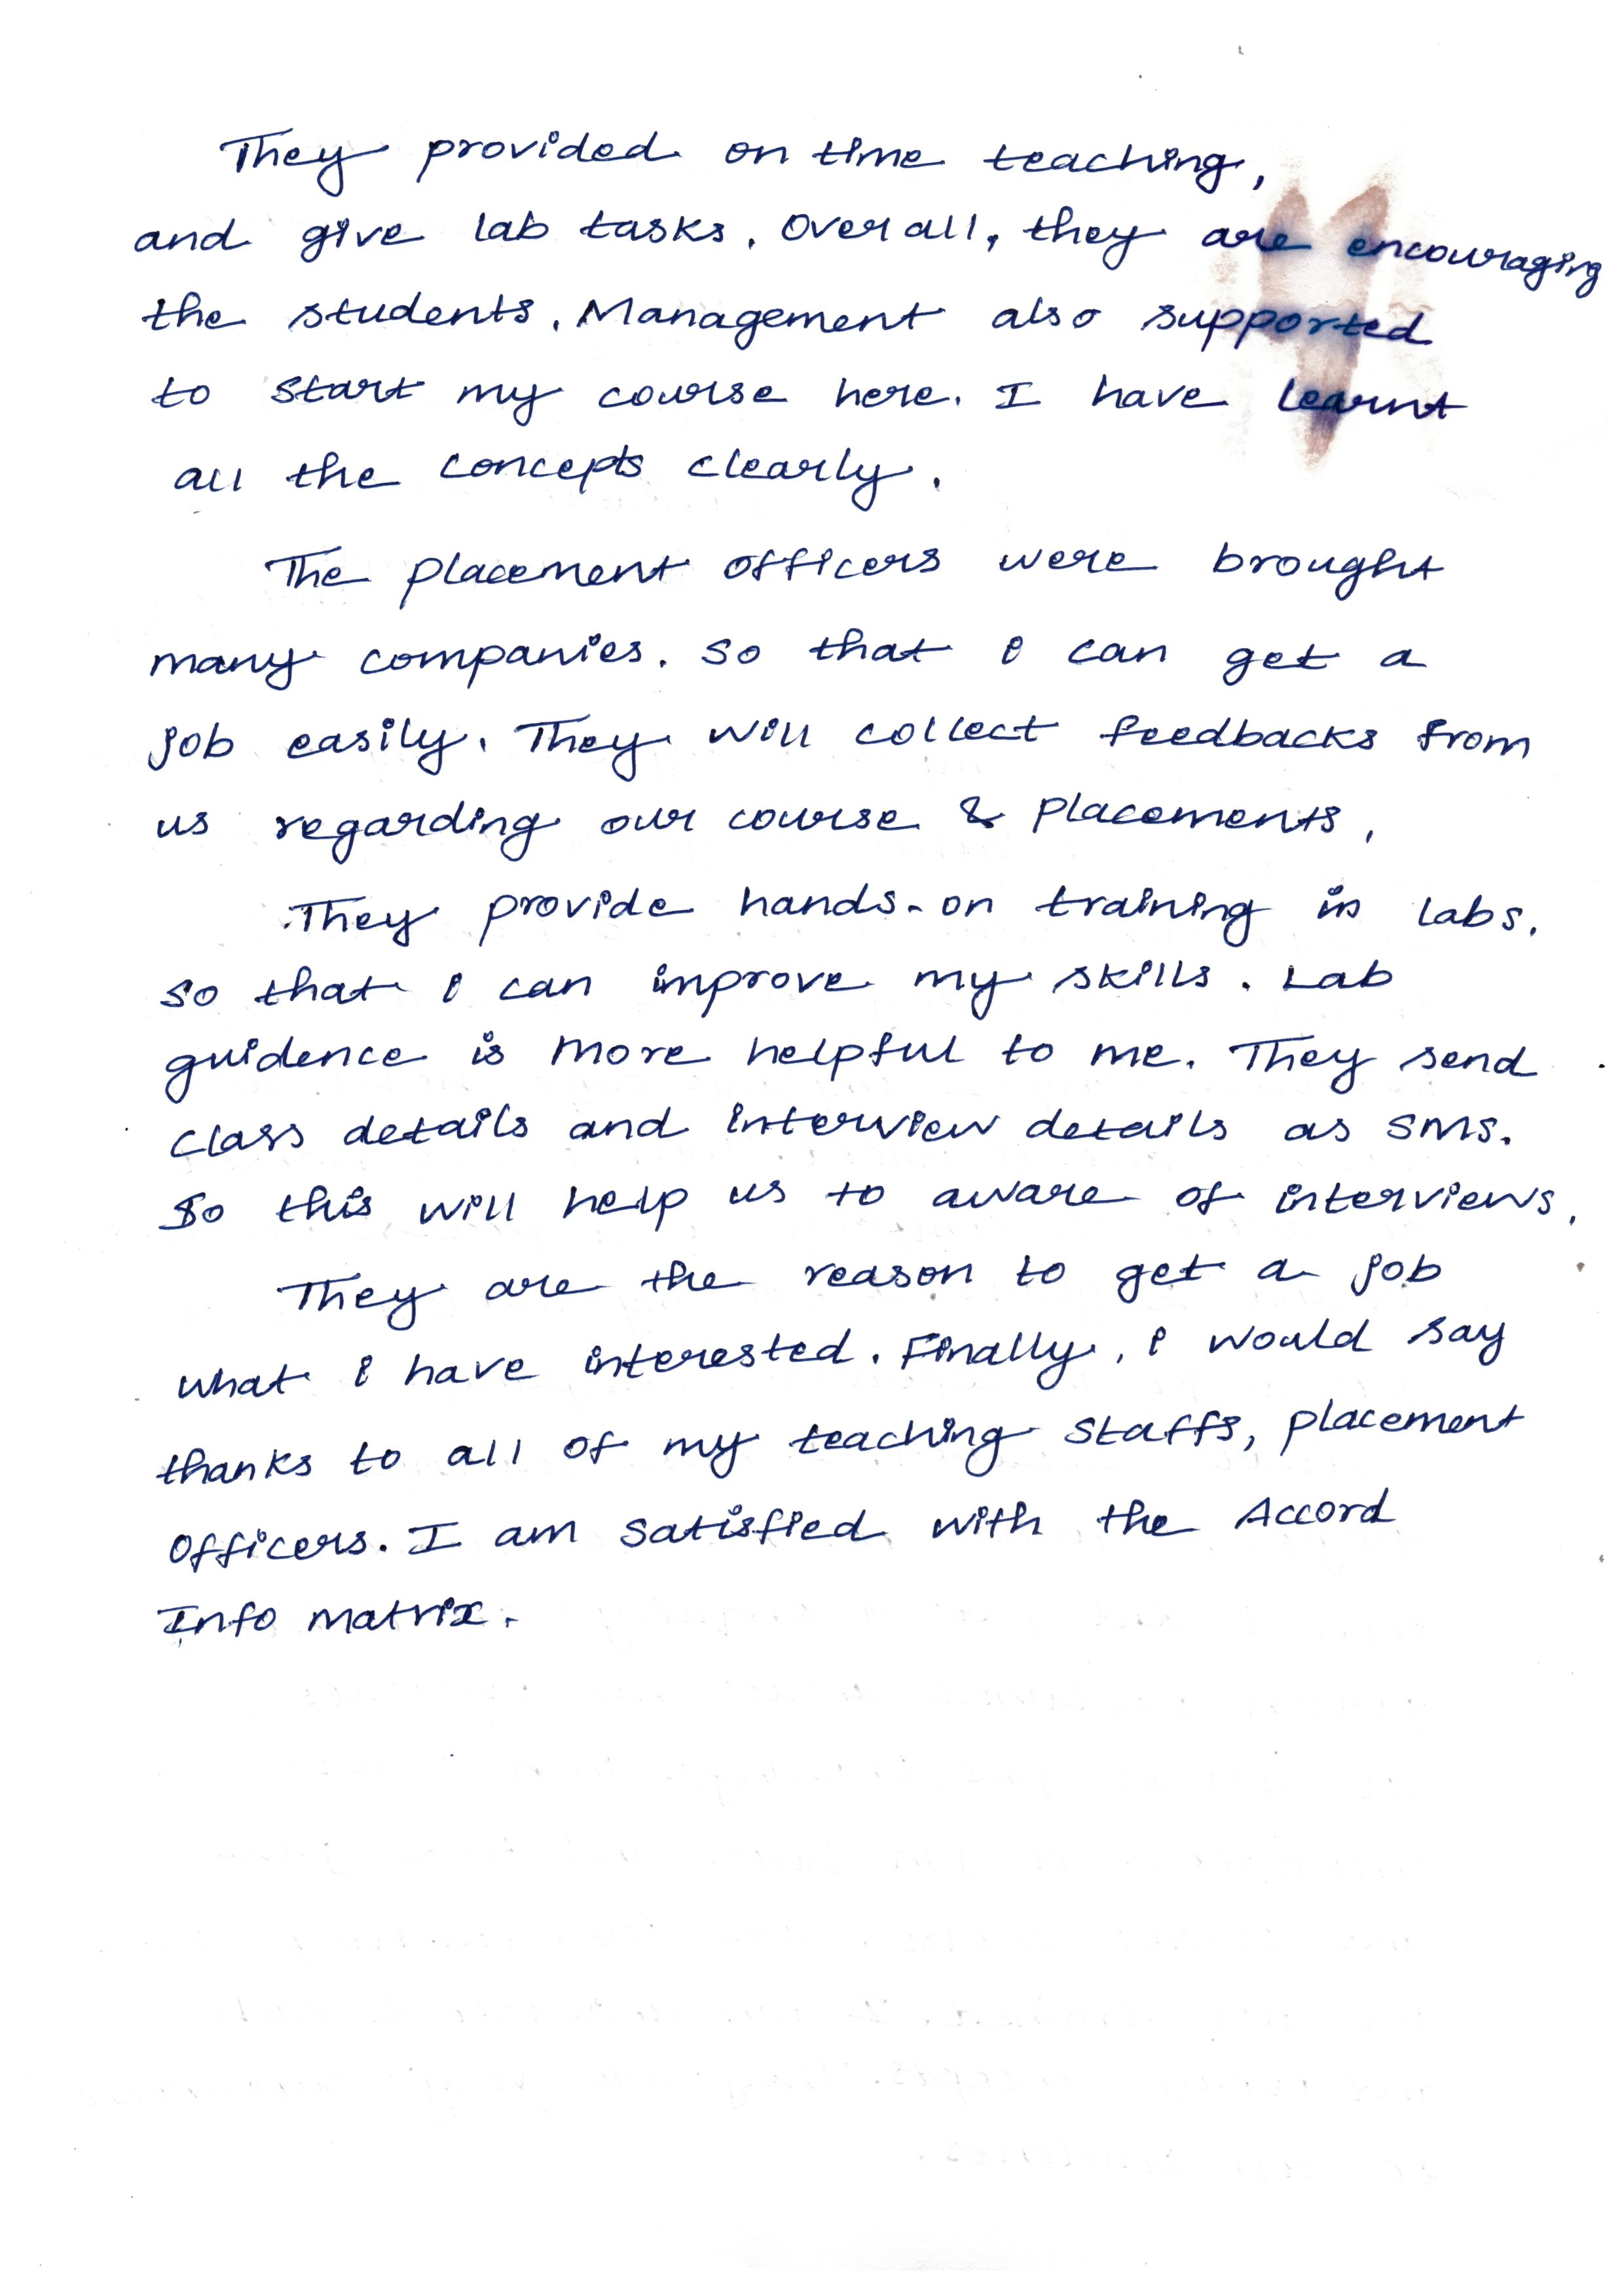 They provided on time teaching,
and give lab tasks. Overall, they are encouraging
the students. Management also supported
to start my course here. I have learnt
all the concepts clearly.
The placement officers were brought
many companies. So that i can get a
job easily. They will collect feedbacks from
us regarding our course & placements.
They provide hands-on training in labs.
So that i can improve my skills. Lab
guidence is more helpful to me. They send
class details and interview details as SMS.
So this will help us to aware of interviews.
They are the reason to get a job
what i have interested. Finally, i would say
thanks to all of my teaching staffs, placement
officers. I am satisfied with the Accord
Info matrix.